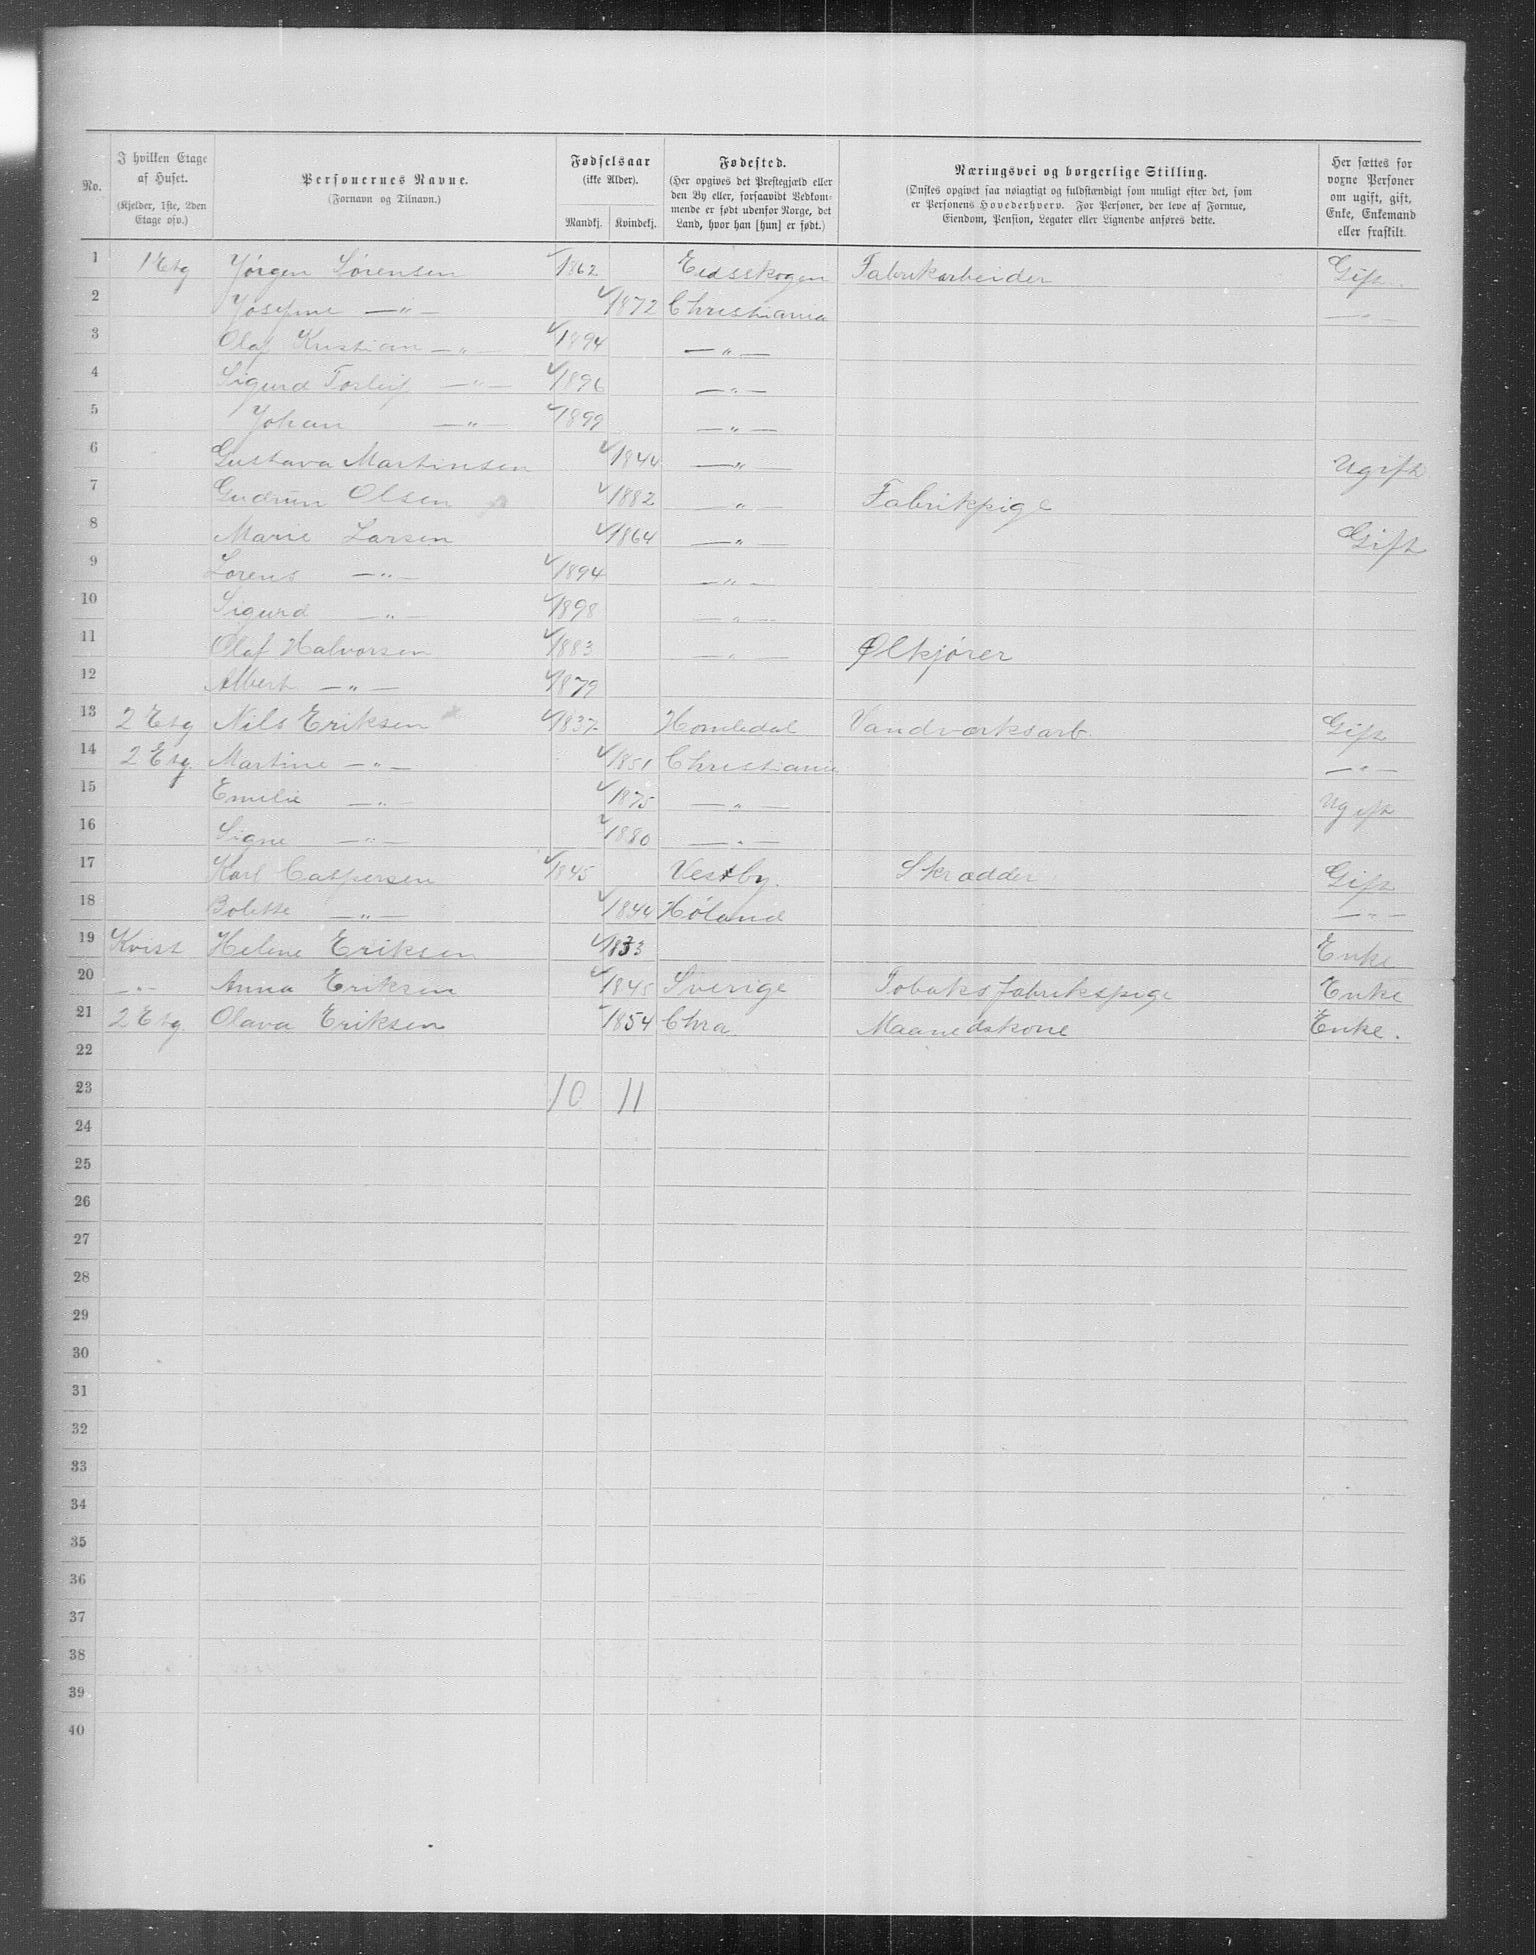 No. | I hvilken Etage af Huset. (Kjelder, 1ste, 2den Etage osv.) | Personernes Navne. (Fornavn og Tilnavn.) | Fødselsaar (ikke Alder). Mandkj. Kvindekj. | Fødested. (Her opgives det Prestegjæld eller den By eller, forsaavidt Vedkommende er født udenfor Norge, det Land, hvor han [hun] er født.) | Næringsvei og borgerlige Stilling. (Ønskes opgivet saa nøiagtigt og fuldstændigt som muligt efter det, som er Personens Hovederhverv. For Personer, der leve af Formue, Eiendom, Pension, Legater eller Lignende anføres dette. | Her sættes for voxne Personer om ugift, gift, Enke, Enkemand eller fraskilt.
1 1 Etg Jørgen Sørensen 1862 Eidsskogen Fabrikarbeider Gift.
2 Josefine —"— 1872 Christiania —"—
3 Olaf Kristian —"— 1894 —"—
4 Sigurd Torleif —"— 1896 —"—
5 Johan —"— 1899 —"—
6 Gustava Martinsen 1844 —"— Ugift
7 Gudrun Olsen 1882 —"— Fabrikpige
8 Marie Larsen 1864 —"— Gift
9 Lorens —"— 1894 —"—
10 Sigurd —"— 1898 —"—
11 Olaf Halvorsen 1883 —"— Ølkjører
12 Albert —"— 1879
13 2 Etg Nils Eriksen 1837 Homledal Vandværksarb. Gift
14 2 Etg. Martine —"— 1851 Christiania —"—
15 Emilie —"— 1875 —"— Ugift
16 Signe —"— 1880 —"—
17 Karl Caspersen 1845 Vestby. Skrædder Gift
18 Bolette —"— 1844 Høland —"—
19 Kvist Helene Eriksen 1833 Enke
20 —"— Anna Eriksen 1845 Sverige Tobaksfabrikspige Enke
21 2 Etg. Olava Eriksen 1854 Chra Maanedskone Enke.
22
23 10 11
24
25
26
27
28
29
30
31
32
33
34
35
36
37
38
39
40